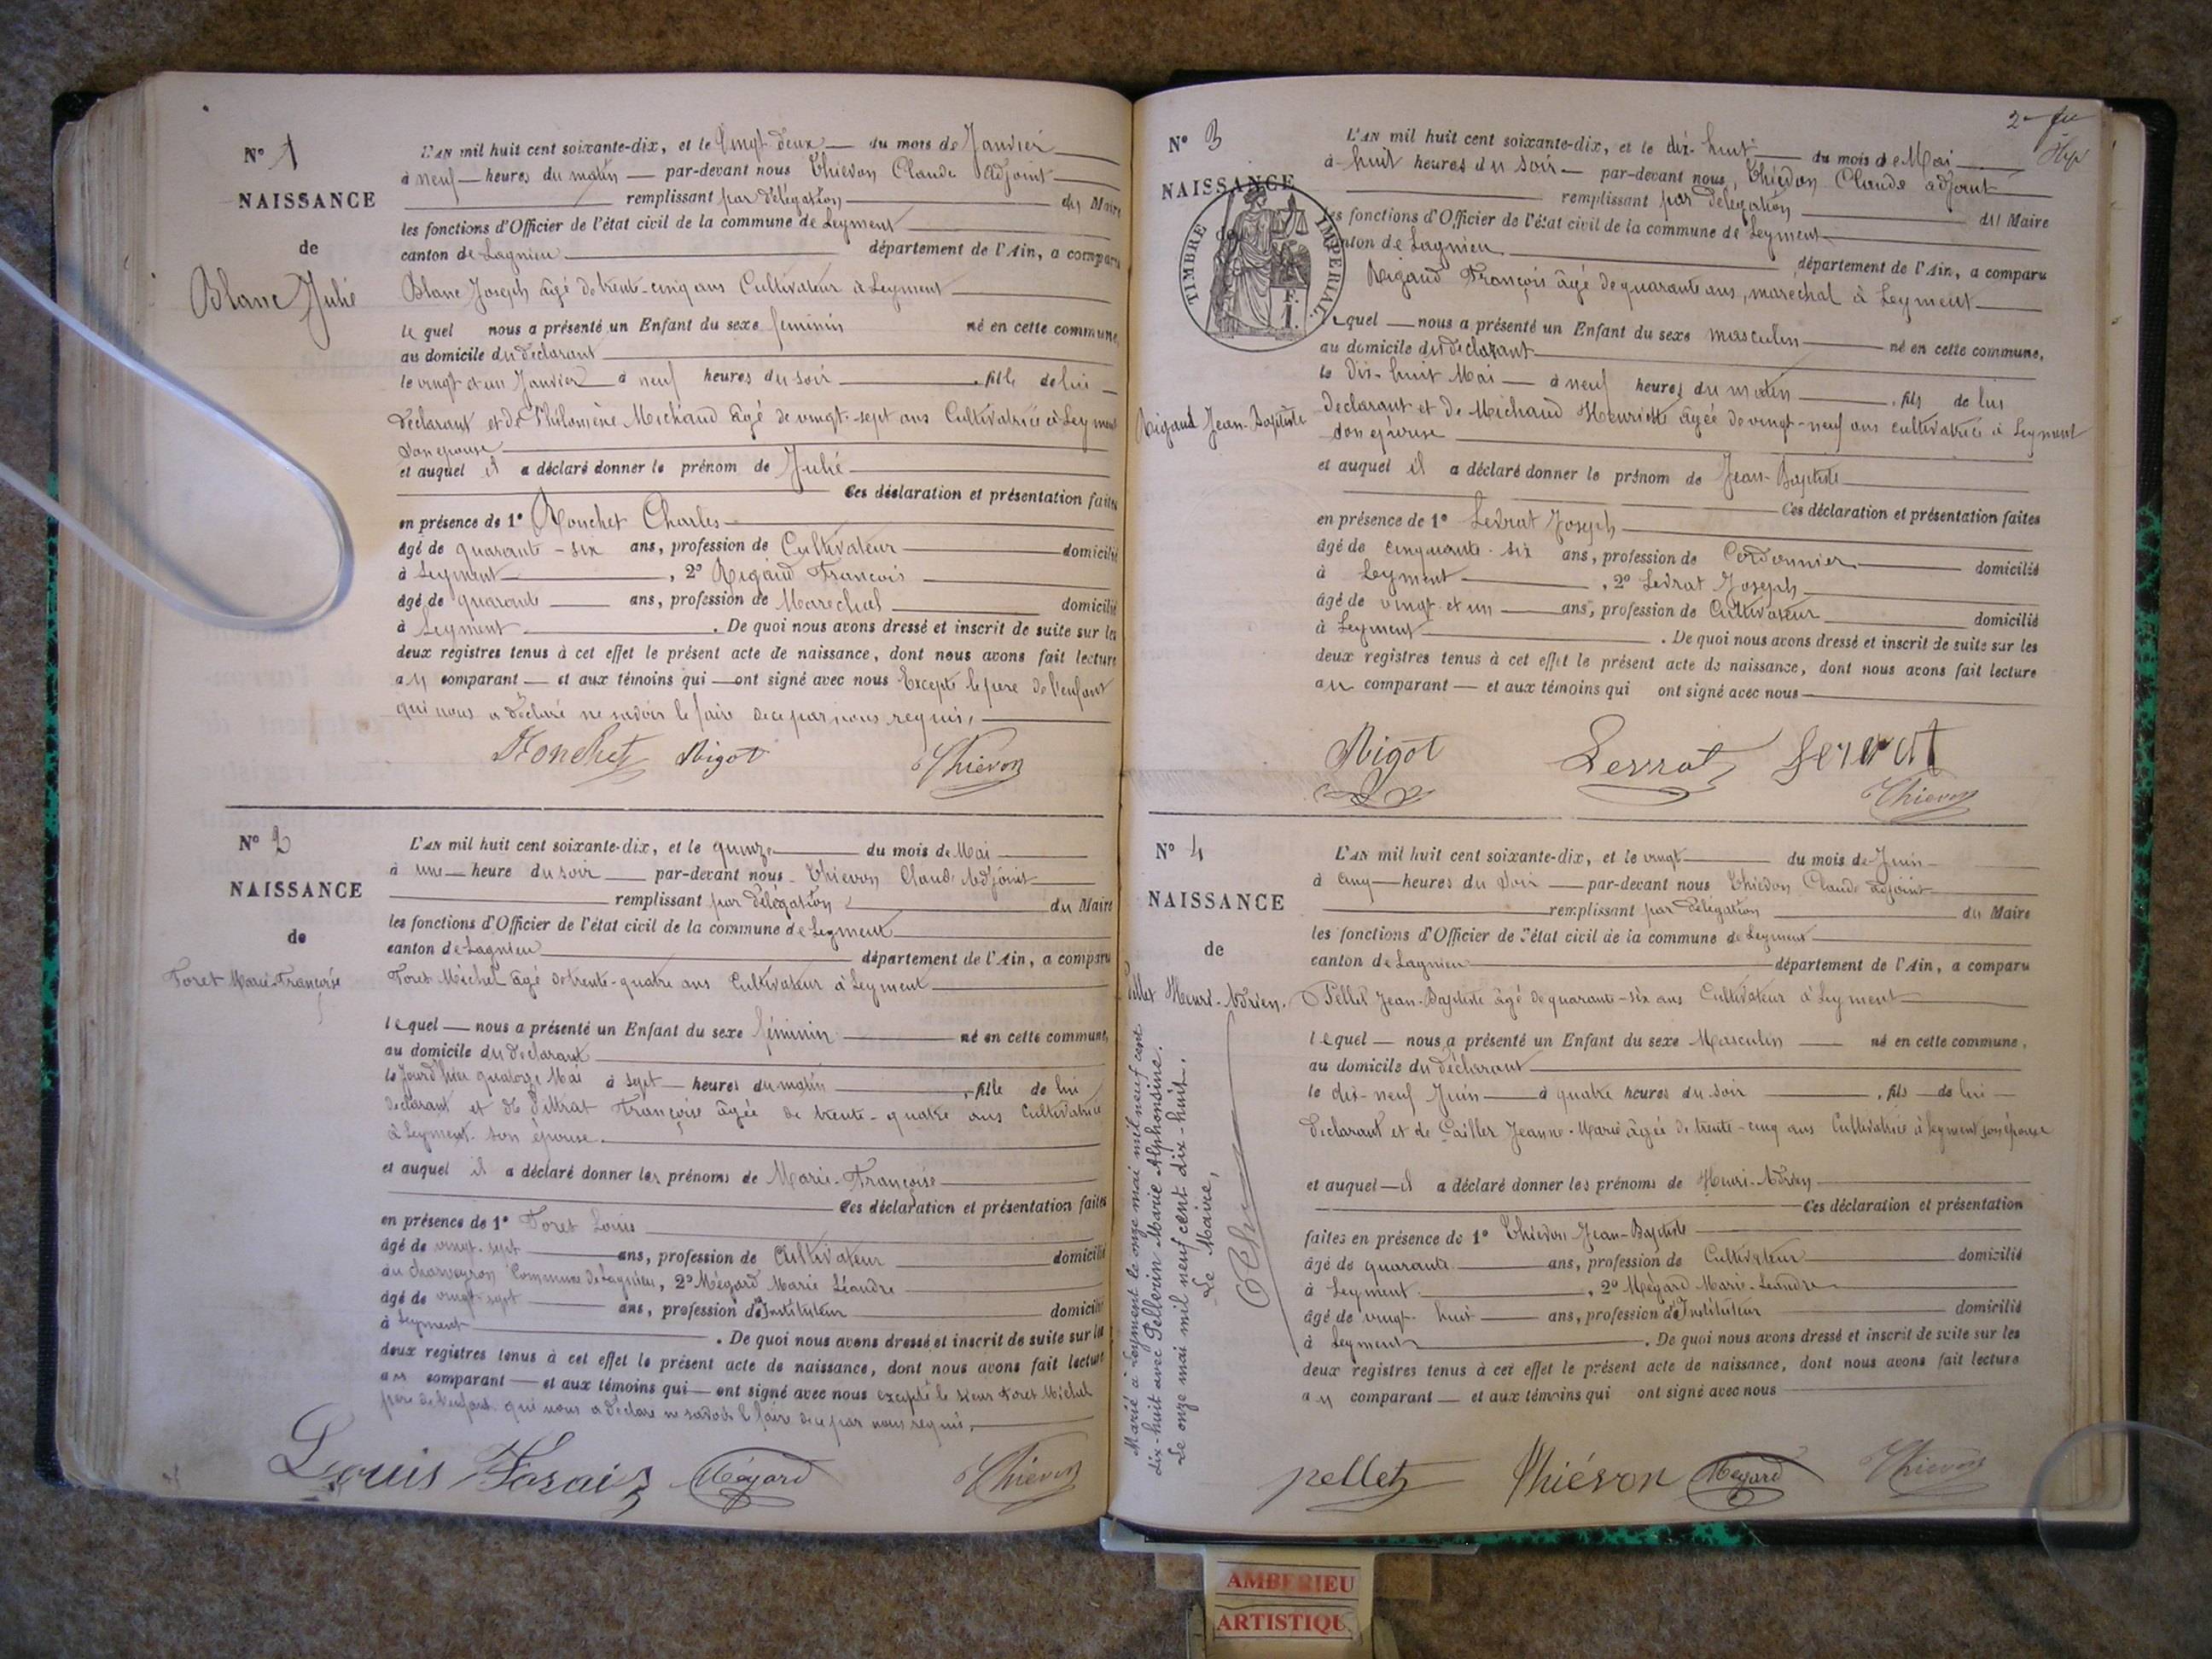 N° 1
NAISSANCE
de
Blanc Julie
L'AN mil huit cent soixante-dix, et le vingt deux du mois de Janvier
à neuf heures du matin par-devant nous Thievon Claude Adjoint
remplissant par délégation du Maire
les fonctions d'Officier de l'état civil de la commune de Leyment
canton de Lagnieu département de l'Ain, a comparu
Blanc Joseph âgé de trente-cinq ans Cultivateur à Leyment
le quel nous a présenté un Enfant du sexe feminin né en cette commune,
au domicile du déclarant
le vingt et un Janvier à neuf heures du soir , fille de lui
déclarant et de Philomène Michaud âgé de vingt-sept ans Cultivatrice à Leyment
son epouse
et auquel il a déclaré donner le prénom de Julie
Ces déclaration et présentation faites
en présence de 1° Ronchet Charles
âgé de quarante-six ans, profession de Cultivateur domicilié
à Leyment , 2° Rigaud François
âgé de quarante ans, profession de Marechal domicilié
à Leyment . De quoi nous avons dressé et inscrit de suite sur les
deux registres tenus à cet effet le présent acte de naissance, dont nous avons fait lecture
au comparant et aux témoins qui ont signé avec nous Excepté le père de l'enfant
qui nous a déclaré ne savoir le faire de ce par nous requis,
Ronchet Rigot Thievon
N° 2
NAISSANCE
de
Foret Marie-Françoise
L'AN mil huit cent soixante-dix, et le quinze du mois de Mai
à une heure du soir par-devant nous Thievon Claude Adjoint
remplissant par délégation du Maire
les fonctions d'Officier de l'état civil de la commune de Leyment
canton de Lagnieu département de l'Ain, a comparu
Foret Michel âgé de trente-quatre ans Cultivateur à Leyment
lequel nous a présenté un Enfant du sexe féminin né en cette commune,
au domicile du déclarant
le jourd'hier quatorze Mai à sept heures du matin , fille de lui
déclarant et de Françoise âgée de trente-quatre ans Cultivatrice
à Leyment son épouse.
et auquel il a déclaré donner les prénoms de Marie-Françoise
Ces déclaration et présentation faites
en présence de 1° Foret Louis
âgé de vingt-sept ans, profession de Cultivateur domicilié
au Charveyron Commune de Lagnieu, 2° Mégard Marie Léandre
âgé de vingt-sept ans, profession d'Instituteur domicilié
à Leyment . De quoi nous avons dressé et inscrit de suite sur les
deux registres tenus à cet effet le présent acte de naissance, dont nous avons fait lecture
au comparant et aux témoins qui ont signé avec nous excepté le sieur Foret Michel
père de l'enfant qui nous a déclaré ne savoir le faire de ce par nous requis,
Louis Mégard Thievon
2e
N° 3
NAISSANCE
de
TIMBRE IMPERIAL
F.
1.
Rigaud Jean-Baptiste
L'AN mil huit cent soixante-dix, et le dix-huit du mois de Mai
à huit heures du soir par-devant nous, Thievon Claude adjoint
remplissant par délégation du Maire
les fonctions d'Officier de l'état civil de la commune de Leyment
canton de Lagnieu département de l'Ain, a comparu
Rigaud François âgé de quarante ans, marechal à Leyment
lequel nous a présenté un Enfant du sexe masculin né en cette commune,
au domicile du déclarant
le dix-huit Mai à neuf heures du matin , fils de lui
déclarant et de Michaud Henriette âgée de vingt-neuf ans cultivatrice à Leyment
son épouse
et auquel il a déclaré donner le prénom de Jean-Baptiste
Ces déclaration et présentation faites
en présence de 1° Levrat Joseph
âgé de cinquante-six ans, profession de Cordonnier domicilié
à Leyment , 2° Levrat Joseph
âgé de vingt et un ans, profession de Cultivateur domicilié
à Leyment . De quoi nous avons dressé et inscrit de suite sur les
deux registres tenus à cet effet le présent acte de naissance, dont nous avons fait lecture
au comparant et aux témoins qui ont signé avec nous
Rigot Levrat Levrat
Thievon
N° 4
NAISSANCE
de
Pellet Henri-Adrien.
L'AN mil huit cent soixante-dix, et le vingt du mois de Juin
à cinq heures du soir par-devant nous Thievon Claude adjoint
remplissant par délégation du Maire
les fonctions d'Officier de l'état civil de la commune de Leyment
canton de Lagnieu département de l'Ain, a comparu
Pellet Jean-Baptiste âgé de quarante-six ans Cultivateur à Leyment
lequel nous a présenté un Enfant du sexe Masculin né en cette commune,
au domicile du déclarant
le dix-neuf Juin à quatre heures du soir , fils de lui
déclarant et de Cailler Jeanne-Marie âgée de trente-cinq ans Cultivatrice à Leyment son épouse
et auquel il a déclaré donner les prénoms de Henri-Adrien
Ces déclaration et présentation
faites en présence de 1° Thievon Jean-Baptiste
âgé de quarante ans, profession de Cultivateur domicilié
à Leyment , 2° Mégard Marie-Leandre
âgé de vingt-huit ans, profession d'Instituteur domicilié
à Leyment . De quoi nous avons dressé et inscrit de suite sur les
deux registres tenus à cet effet le présent acte de naissance, dont nous avons fait lecture
au comparant et aux témoins qui ont signé avec nous
pellet Thiévon Mégard Thievon
Marié à Leyment le onze mai mil neuf cent
dix-huit avec Pellerin Marie Alphonsine.
Le onze mai mil neuf cent dix-huit.
Le Maire,
AMBERIEU
ARTISTIQU